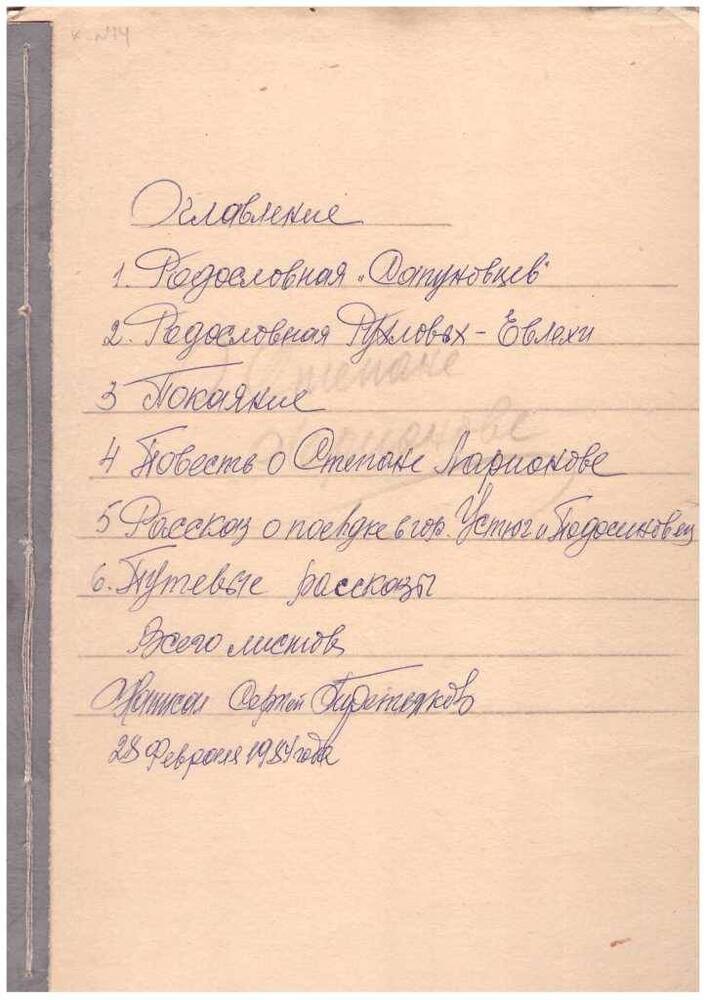 к-N14
Оглавление
1. Родословная „Сапуновцев"
2. Родословная Рухловых - Евлехи
Степане
Ларионове
3 Покаяние
4 Повесть о Степане Ларионове
5 Рассказ о поездке в гор. Устюг и Подосиновец
6. Путевые рассказы
Всего листов
Написал Сергей
28 Февраля 1984 года